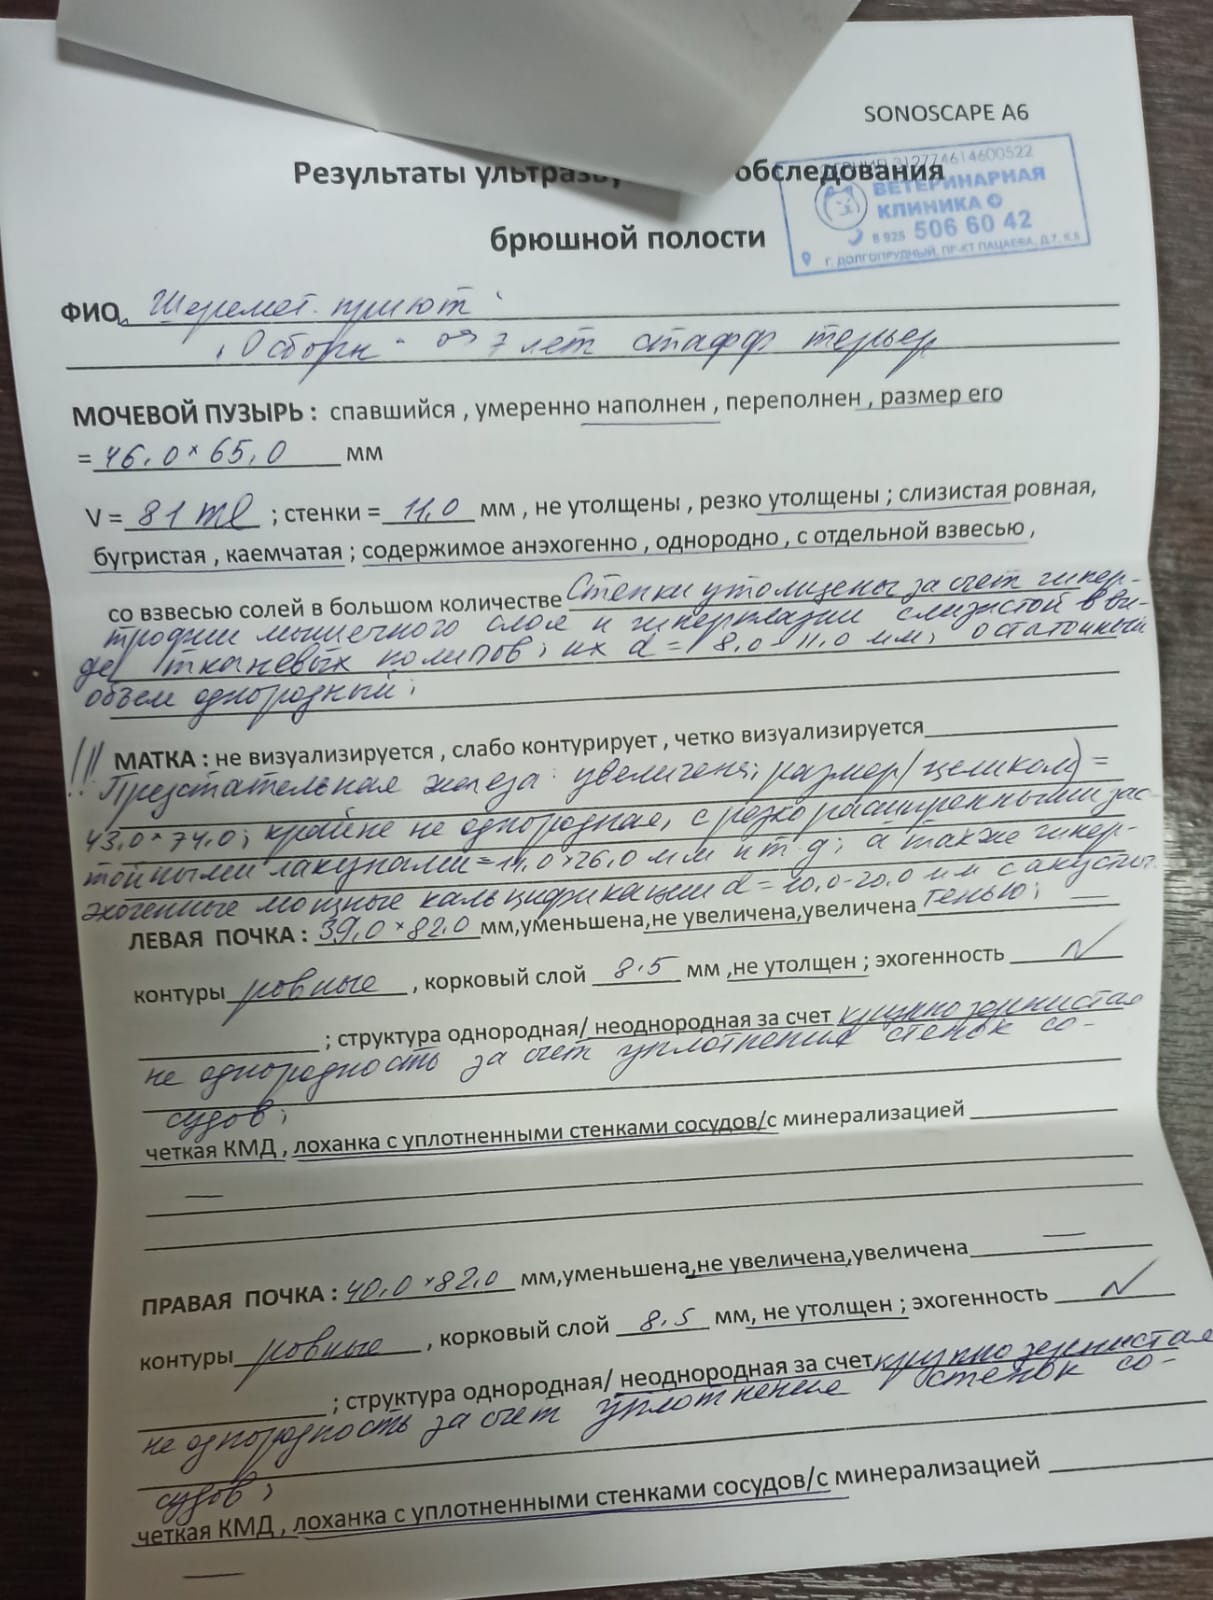 SONOSCAPE A6
Результаты ультразву обследования
брюшной полости
312774614600522
ВЕТЕРИНАРНАЯ
КЛИНИКА
8 925 506 60 42
Г. ДОЛГОПРУДНЫЙ, ПР-КТ ПАЦАЕВА, Д.7, К.
ФИО Шеремет. приют
Осборн - 7 лет стафф терьер
МОЧЕВОЙ ПУЗЫРЬ : спавшийся , умеренно наполнен , переполнен , размер его
= 46,0 × 65,0 мм
V = 81 ml ; стенки = 11,0 мм , не утолщены , резко утолщены ; слизистая ровная,
бугристая , каемчатая ; содержимое анэхогенно , однородно , с отдельной взвесью ,
со взвесью солей в большом количестве Стенки утолщены за счет гипер-
трофии мышечного слоя и гиперплазии слизистой в ви-
де тканевых полипов, их d = 8,0-11,0 мм, остаточный
объем однородный;
!!! МАТКА : не визуализируется , слабо контурирует , четко визуализируется
Предстательная железа: увеличена; размер (целиком) =
43,0 × 74,0; крайне не однородная, с резко расширенными зас-
тойными лакунами = 14,0 × 26,0 мм и т.д; а также гипер-
эхогенные мощные кальцификации d = 10,0-20,0 мм с акустич.
тенью;
ЛЕВАЯ ПОЧКА : 39,0 × 82,0 мм,уменьшена,не увеличена,увеличена —
контуры ровные , корковый слой 8.5 мм ,не утолщен ; эхогенность N
; структура однородная/ неоднородная за счет крупно зернистая
не однородность за счет уплотнения стенок со-
судов;
четкая КМД , лоханка с уплотненными стенками сосудов/с минерализацией
—
ПРАВАЯ ПОЧКА : 40,0 × 82,0 мм,уменьшена,не увеличена,увеличена —
контуры ровные , корковый слой 8.5 мм, не утолщен ; эхогенность N
; структура однородная/ неоднородная за счет крупно зернистая
не однородность за счет уплотнения стенок со-
судов;
четкая КМД , лоханка с уплотненными стенками сосудов/с минерализацией
—